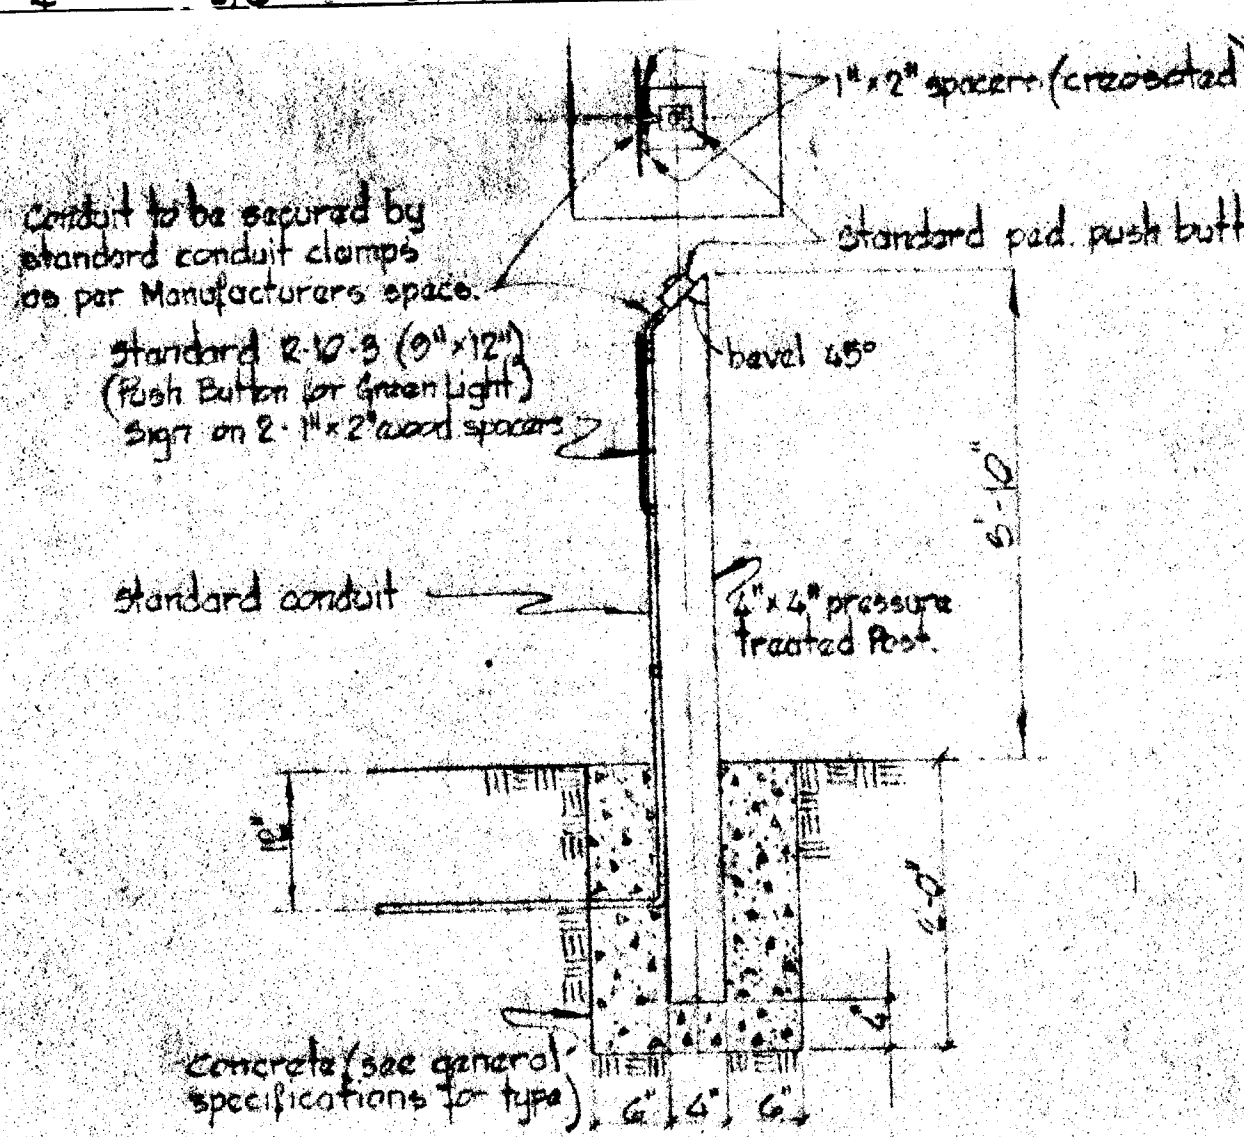 1" x 2" spacers (creosoted)
Conduit to be secured by
standard conduit clamps
as per Manufacturers specs.
standard ped. push butt
Standard R-10-3 (9" x 12")
(Push Button for Green Light)
Sign on 2-1" x 2" wood spacers
bevel 45°
standard conduit
4" x 4" pressure
Treated Post.
4"
Concrete (see general
specifications for type)
6" 4" 6"